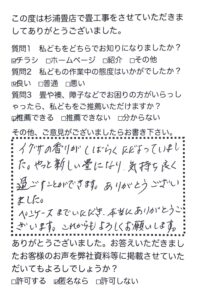 この度は杉浦畳店で畳工事をさせていただきま
してありがとうございました。
質問1　私どもをどちらでお知りになりましたか?
☑チラシ　□ホームページ　□紹介　□その他
質問2　私どもの作業中の態度はいかがでしたか?
☑良い　□普通　□悪い
質問3　畳や襖、障子などでお困りの方がいらっし
ゃったら、私どもをご推薦いただけますか?
☑推薦できる　□推薦できない　□分からない
その他、ご意見がございましたらお書き下さい。
イグサの香りがしばらくただよっていまし
た。やっと新しい畳になり、気持ち良く
過ごすことができます。ありがとうござい
ました。
ペンケースまでいただき、本当にありがとうご
ざいます。これからもよろしくお願いします。
ありがとうございました。お答えいただきまし
たお客様のお声を弊社資料等に掲載させていた
だいてもよろしでしょうか?
□許可する　☑匿名なら　□許可しない